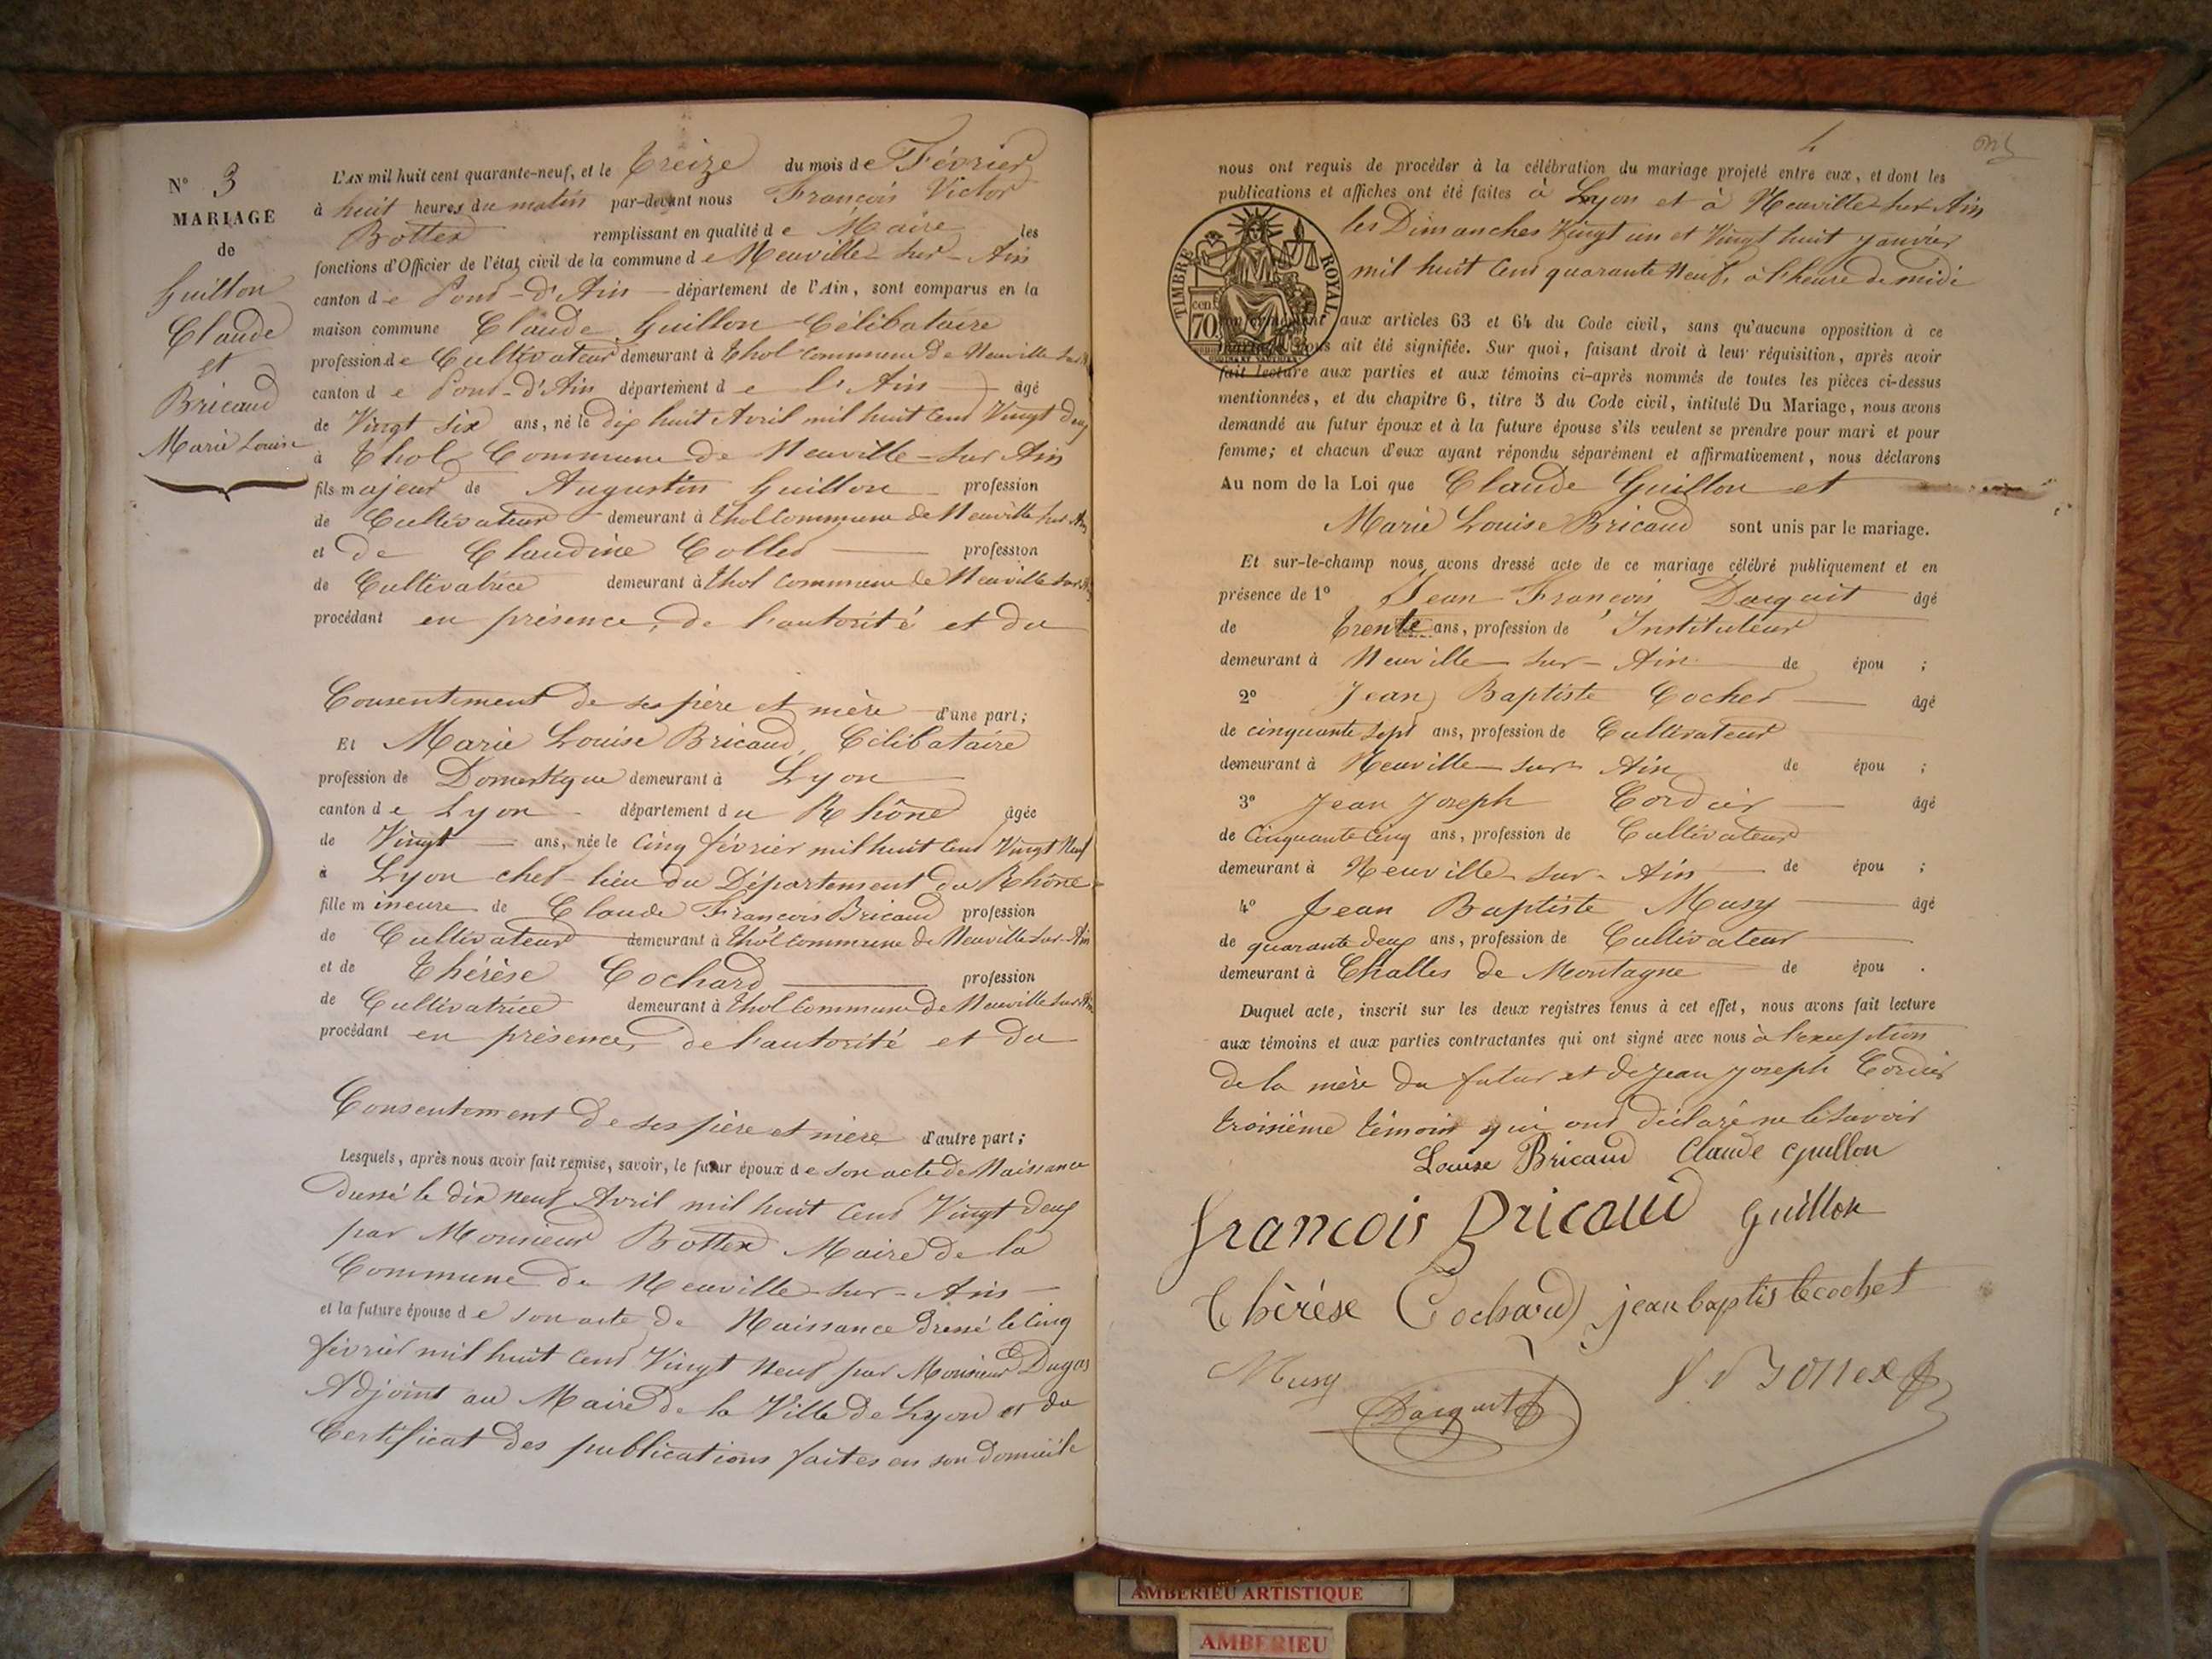 N° 3
MARIAGE
de
Guillon
Claude
et
Bricaud
Marie Louise
L'AN mil huit cent quarante-neuf, et le treize du mois de Février
à huit heures du matin par-devant nous François Victor
Bottex remplissant en qualité de Maire les
fonctions d'Officier de l'état civil de la commune de Neuville-sur-Ain
canton de Pont-d'Ain département de l'Ain, sont comparus en la
maison commune Claude Guillon Célibataire
profession de Cultivateur demeurant à Thol commune de Neuville sur Ain
canton de Pont-d'Ain département de l'Ain âgé
de Vingt six ans, né le dix huit Avril mil huit cent Vingt deux
à Thol Commune de Neuville-sur Ain
fils majeur de Augustin Guillon profession
de Cultivateur demeurant à Thol Commune de Neuville sur Ain
et de Claudine profession
de Cultivatrice demeurant à Thol commune de Neuville sur Ain
procédant en présence, de l'autorité et du
Consentement de ses père et mère d'une part;
Et Marie Louise Bricaud, Célibataire
profession de Domestique demeurant à Lyon
canton de Lyon département du Rhône âgée
de Vingt ans, née le cinq février mil huit cent Vingt Neuf
à Lyon chef-lieu du Département du Rhône
fille mineure de Claude François Bricaud profession
de Cultivateur demeurant à Thol commune de Neuville-sur-Ain
et de Thérèse Cochard profession
de Cultivatrice demeurant à Thol Commune de Neuville sur Ain
procédant en présence, de l'autorité et du
Consentement de ses père et mère d'autre part;
Lesquels, après nous avoir fait remise, savoir, le futur époux de son acte de Naissance
dressé le dix neuf Avril mil huit cent Vingt deux
par Monsieur Bottex Maire de la
Commune de Neuville-sur-Ain
et la future épouse de son acte de Naissance dressé le cinq
février mil huit cent Vingt Neuf par Monsieur Dugas
Adjoint au Maire de la Ville de Lyon et du
Certificat des publications faites en son domicile
4
nous ont requis de procéder à la célébration du mariage projeté entre eux, et dont les
publications et affiches ont été faites à Lyon et à Neuville-sur-Ain
les Dimanches Vingt un et Vingt huit Janvier
mil huit cent quarante Neuf, à l'heure de midi
TIMBRE ROYAL
cent
70
conformément aux articles 63 et 64 du Code civil, sans qu'aucune opposition à ce
mariage nous ait été signifiée. Sur quoi, faisant droit à leur réquisition, après avoir
fait lecture aux parties et aux témoins ci-après nommés de toutes les pièces ci-dessus
mentionnées, et du chapitre 6, titre 5 du Code civil, intitulé Du Mariage, nous avons
demandé au futur époux et à la future épouse s'ils veulent se prendre pour mari et pour
femme; et chacun d'eux ayant répondu séparément et affirmativement, nous déclarons
Au nom de la Loi que Claude Guillon et
Marie Louise Bricaud sont unis par le mariage.
Et sur-le-champ nous avons dressé acte de ce mariage célébré publiquement et en
présence de 1° Jean François Dacquit âgé
de trente ans, profession de Instituteur
demeurant à Neuville-sur-Ain de épou ;
2° Jean Baptiste Cochet âgé
de cinquante sept ans, profession de Cultivateur
demeurant à Neuville-sur-Ain de épou ;
3° Jean Joseph Cordier âgé
de Cinquante Cinq ans, profession de Cultivateur
demeurant à Neuville-sur-Ain de épou ;
4° Jean Baptiste Musy âgé
de quarante deux ans, profession de Cultivateur
demeurant à Challes de Montagne de épou .
Duquel acte, inscrit sur les deux registres tenus à cet effet, nous avons fait lecture
aux témoins et aux parties contractantes qui ont signé avec nous à l'exception
de la mère du futur et de Jean Joseph Cordier
troisième témoin qui ont déclaré ne le savoir
Louise Bricaud Claude Guillon
francois Bricaud Guillon
Thérèse Cochard jean baptis te cochet
Musy Dacquit V Bottex
AMBERIEU ARTISTIQUE
AMBERIEU